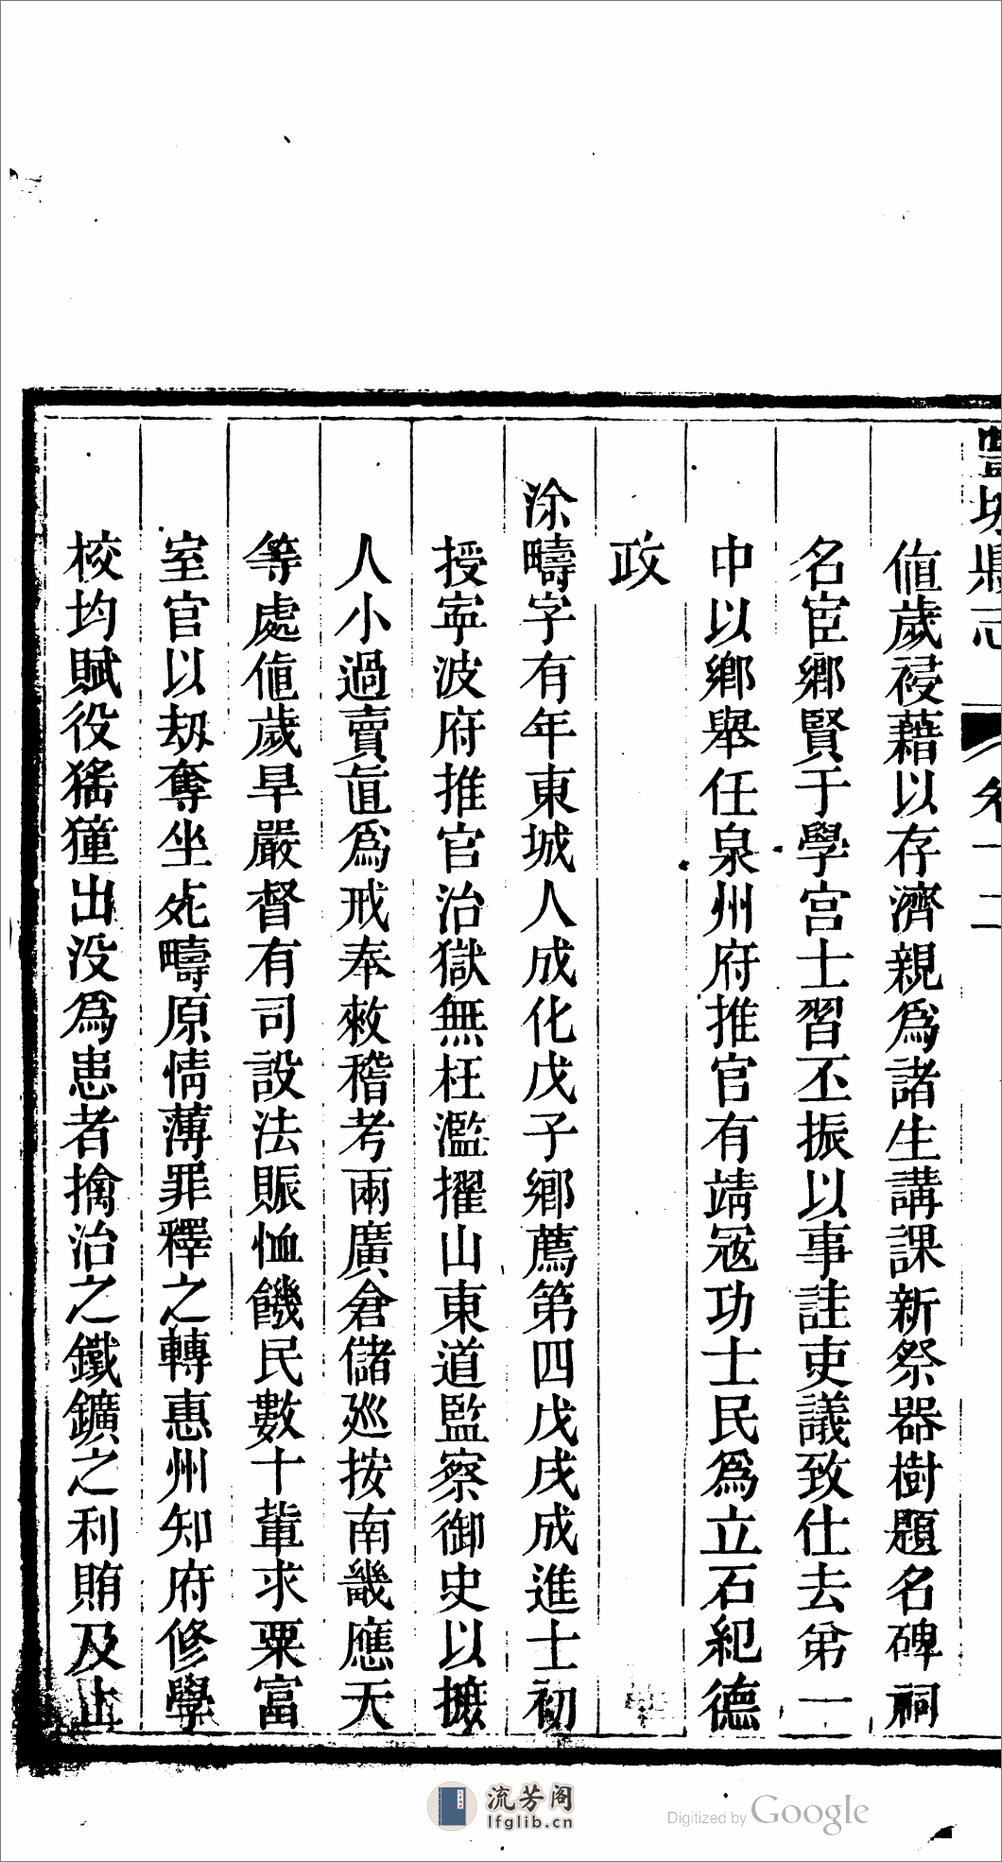 豐城縣志
卷十二
値歲祲藉以存濟親爲諸生講課新祭器樹題名碑祠
名宦鄉賢于學宮士習丕振以事詿吏議致仕去弟一
中以鄉舉任泉州府推官有靖冦功士民爲立石紀德
政
涂疇字有年東城人成化戊子鄉薦第四戊戌成進士初
授寜波府推官治獄無枉濫擢山東道監察御史以摭
人小過賣直爲戒奉敕稽考兩廣倉儲廵按南畿應天
等處値歲旱嚴督有司設法賑恤饑民數十軰求粟富
室官以刼奪坐死疇原情薄罪釋之轉惠州知府修學
校均賦役猺獞出没爲患者擒治之鐵鑛之利賄及止
流芳阁
lfglib.cn
Digitized by Google